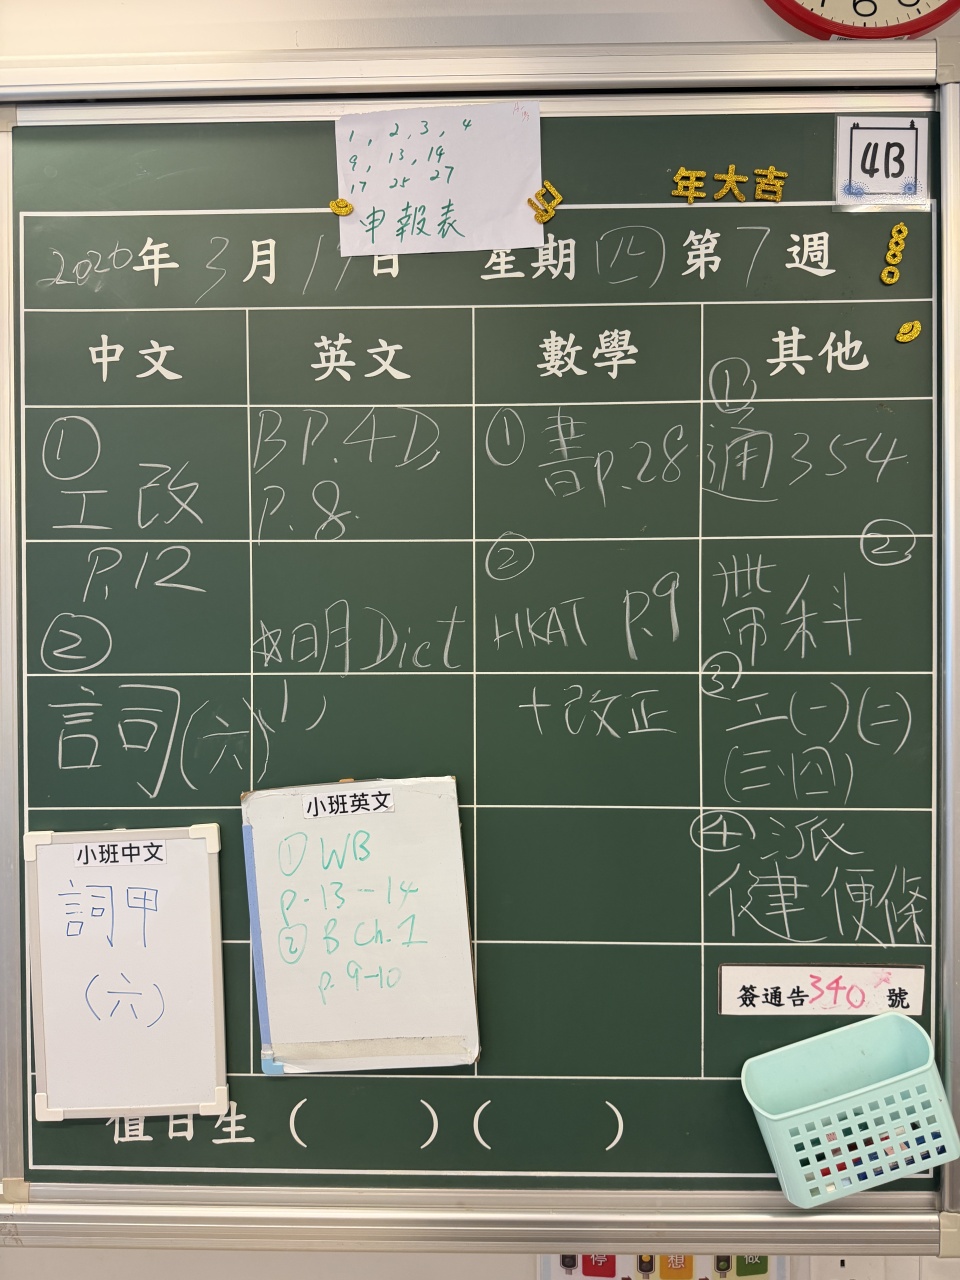 1, 2, 3, 4
9, 13, 14
17 25 27
申報表
4B
年大吉
2020年3月19日 星期(四)第7週
中文 英文 數學 其他
①
工改
P.12
②
詞(六)
BP.4D,
P.8
☆明Dict
1)
① 書P.28
②
HKAT P.9
+改正
①
通354
②
帶科
③
工(一)(二)
(三)(四)
④派
健便條
小班中文
詞甲
(六)
小班英文
① WB
p.13-14
② B Ch.1
p.9-10
簽通告340號
值日生 ( ) ( )
停
想
做